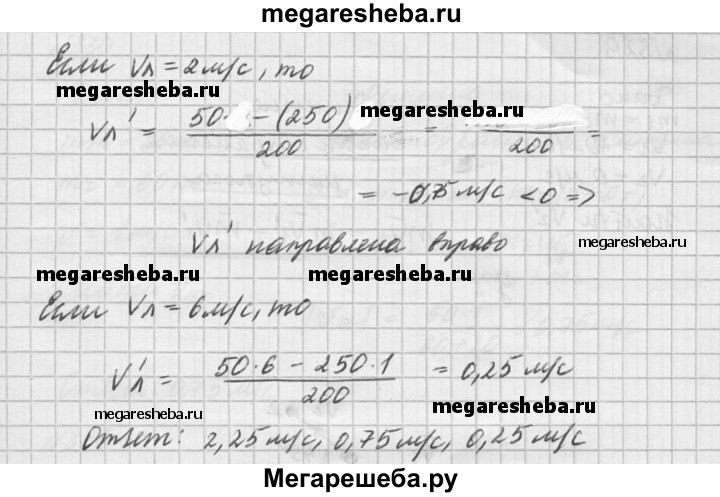 megaresheba.ru
Если Vл = 2м/с, то
megaresheba.ru
Vл' = 50· – (250) / 200 = / 200 =
megaresheba.ru
= –0,75 м/с < 0 =>
Vл' направлена вправо
megaresheba.ru
megaresheba.ru megaresheba.ru
Если Vл = 6м/с, то
V'л = 50·6 – 250·1 / 200 = 0,25 м/с
megaresheba.ru megaresheba.ru
Ответ: 2,25м/с, 0,75м/с, 0,25 м/с
Мегарешеба.ру